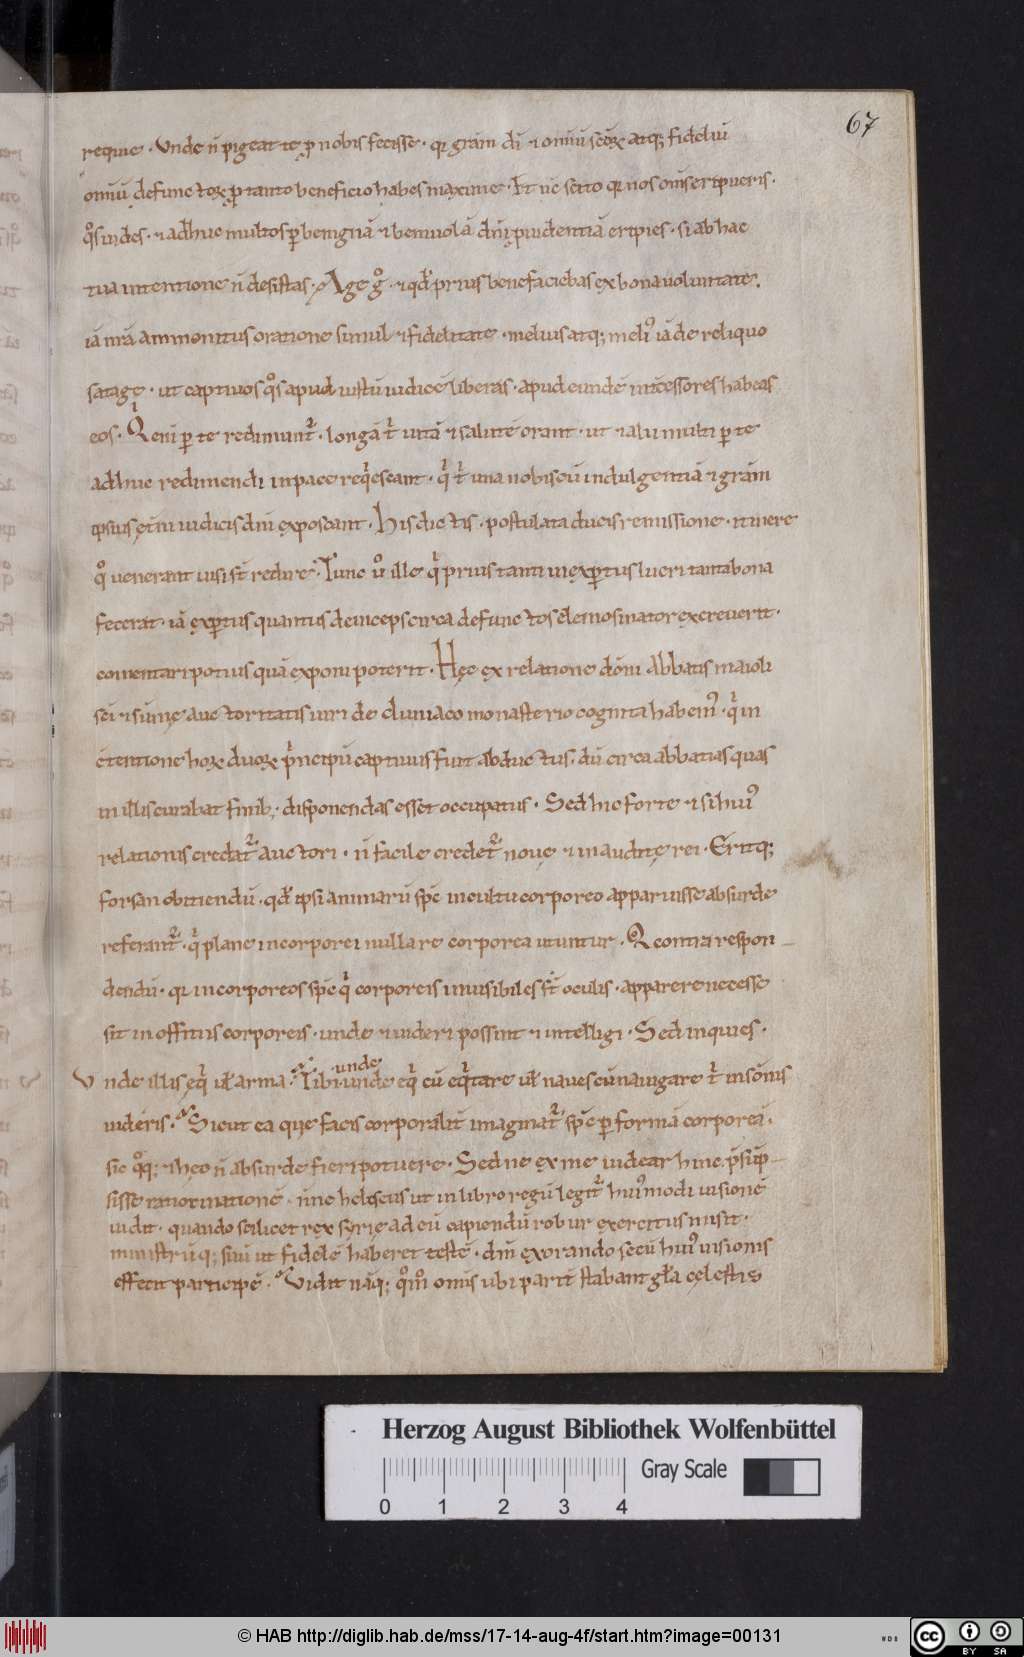 67
requie. Vnde n̄ pigeat te ꝑ nobis fecisse. qr̄ gr̄am dī ⁊ omiū sc̄oꝝ atq; fideliū
omiū defunctoꝝ ꝑ tanto beneficio habes maxime. Et nē scito qr̄ nos om̄s eripueris.
qͦs uides. ⁊ adhuc multos ꝑ benignā ⁊ beniuolā dn̄i ꝓuidentiā eripies. si ab hac
tua intentione n̄ desistas. Age gͦ. ⁊ qd̄ prius benefaciebas ex bona uoluntate.
iā nr̄a ammonitus oratione simul ⁊ fidelitate. melius atq; meliꝰ iā de reliquo
satage. ut captiuos qͦs apud iustū iudicē liberas. apud eundē int̄cessores habeas
eos. Qi eni ꝑ te redimunt᷑. longā t̄ uitā ⁊ salutē orant. ut ⁊ alii multi ꝑ te
adhuc redimendi in pace reqͥescant. qͥ t̄ una nobiscū indulgentiā ⁊ gr̄am
ipsius et̄ni iudicis dn̄i exposcant. His dictis. postulata ducis remissione. itinere
qͦ uenerant iussi st̄ redire. Tunc uͦ ille qͥ prius tanti inexꝑtus lucri tanta bona
fecerat. iā exꝑtus quantus deinceps circa defunctos elemosinator excreuerit.
comentari potius quā exponi poterit. Hęc ex relatione dom̄i Abbatis maioli
sc̄i ⁊ sūmę auctoritatis uiri de cluniaco monasterio cognita habemꝰ. qͥ in
c̄tentione hoꝝ duoꝝ pͥncipū captiuus fuit abductus. dū circa abbatias quas
in illis curabat finib; disponendas esset occupatus. Sed hic forte ⁊ si huiꝰ
relationis credat᷑ auctori. n̄ facile credet᷑ nouę ⁊ inauditę rei. Eritq;
forsan obitiendū. qd̄ ipsi animarū spē in cultu corporeo apparuisse absurde
referant᷑. qͥ plane incorporei nulla re corporea utuntur. Qi contra respon-
dendū. qr̄ incorporeos spē qͥ corporeis inuisibiles st̄ oculis. apparere necesse
sit in offitiis corporeis. unde ⁊ uideri possint ⁊ intelligi. Sed inquies.
Vnde illis eqͥ ul̄ arma. Tibi unde eqͥ cū eqͥtare ul̄ naues cū nauigare t̄ in somnis
unde
uideris. Sicut ea quę facis corporalit̄ imaginat᷑ spē ꝑ formā corporeā.
sic qͦq; ⁊ hęc n̄ absurde fieri potuere. Sed ne ex me uidear hinc p̄sūp-
sisse ratiotinationē. nn̄e heliseus ut in libro regū legit᷑ huiꝰmodi uisionē
uidit. quando scilicet rex syrię ad eū capiendū robur exercitus misit.
ministrūq; suū ut fidelē haberet testē. dn̄m exorando secū huiꝰ uisionis
effecit participē. Vidit nāq; qͦm̄ om̄is ubi parit̄ stabant gl̄a cęlestis
Herzog August Bibliothek Wolfenbüttel
Gray Scale
0 1 2 3 4
© HAB http://diglib.hab.de/mss/17-14-aug-4f/start.htm?image=00131
cc BY SA